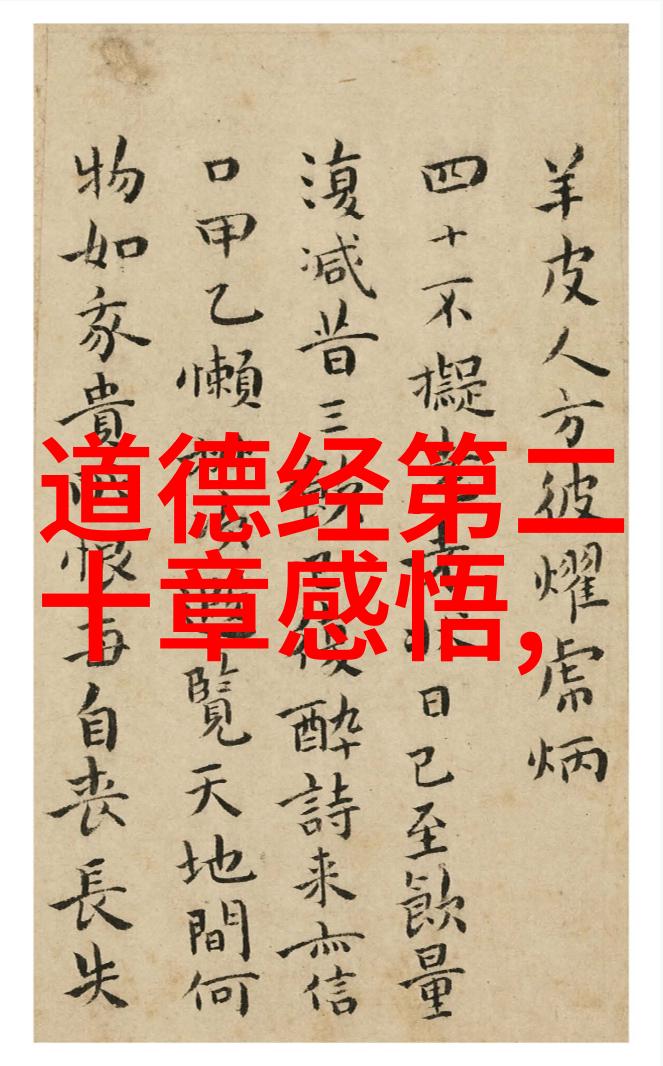 道德经第二
十章感悟,
羊皮人方彼耀虎炳
四十不擬日已至飲量
復減昔三後醉詩来亦信
口甲乙懶覽天地間何
物如貴恨每自丧長失